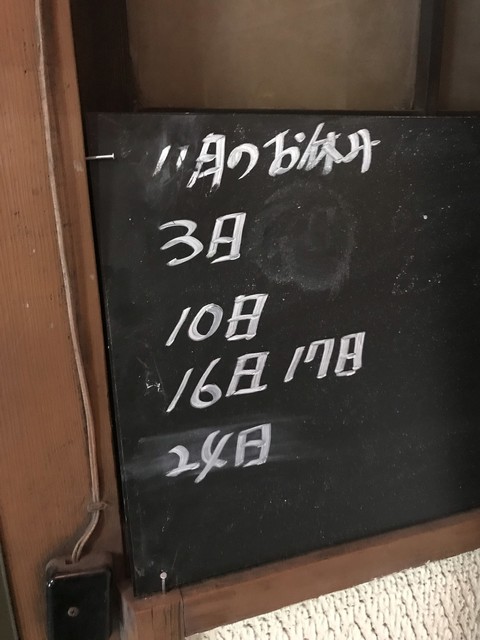 11月のお休み
3日
10日
16日 17日
24日